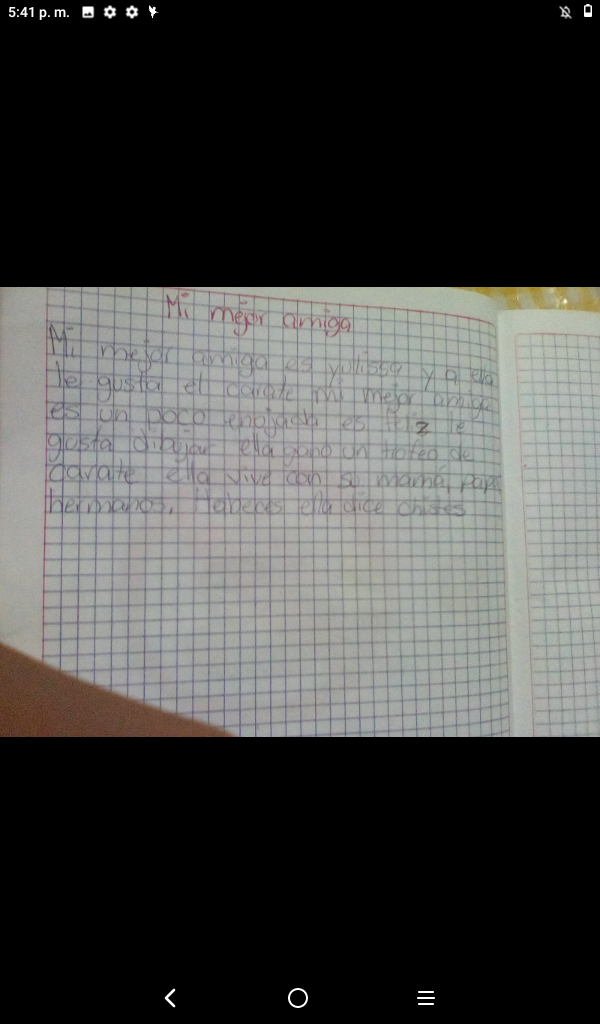 5:41 p. m.
Mi mejor amiga
Mi mejor amiga es yulissa y a ella
le gusta el carate mi mejor amiga
es un poco enojada es feliz le
gusta dibujar ella gano un trofeo de
carate ella vive con su mamá, papa
hermanos. Habeces ella dice chistes